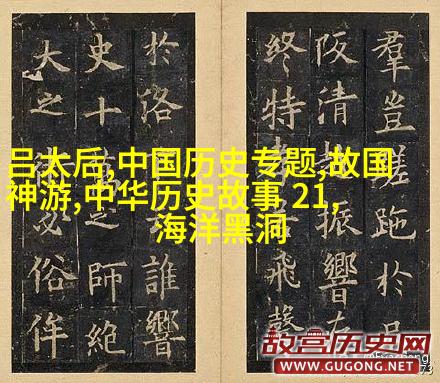 吕太后,中国历史专题,故国
神游,中华历史故事 21,
海洋黑洞
羣豈蹉跎於
阪清振響在
終特飛聲
於洛誰響
史十之師絶
大之必俗侔
故宫历史网
WWW.GUGONG.NET